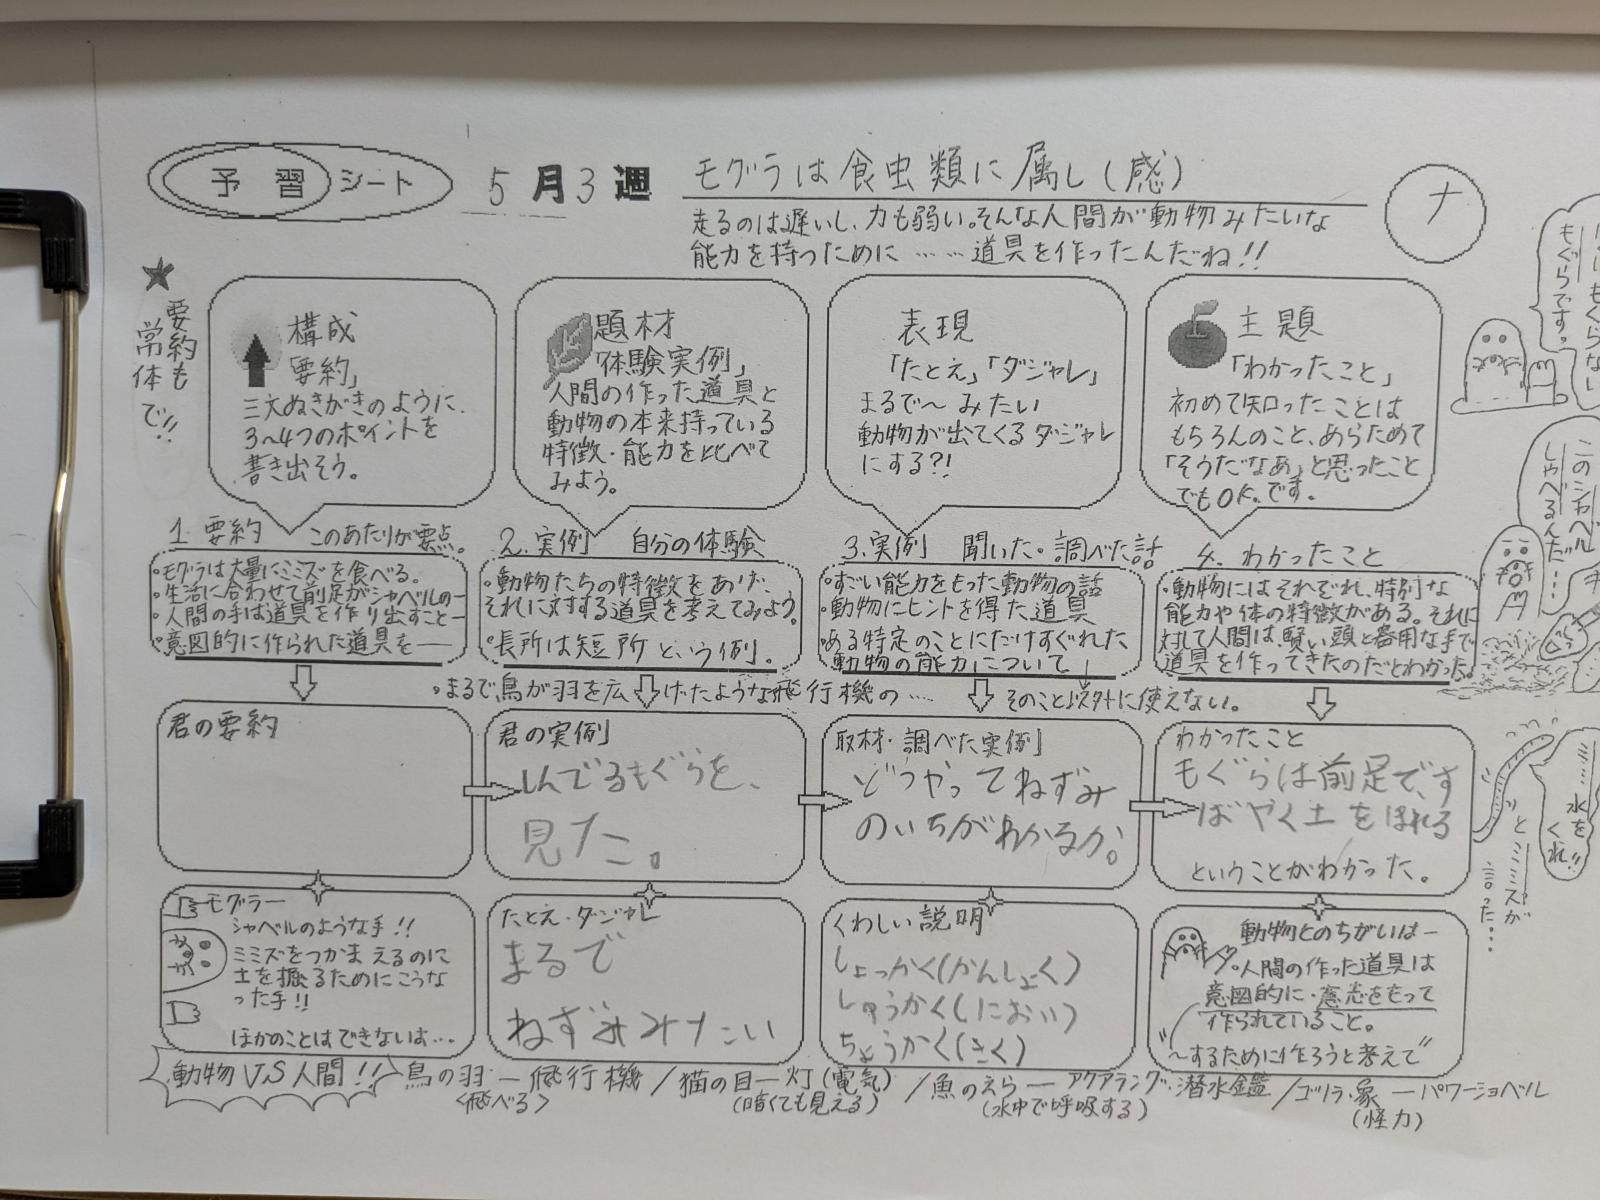 予習シート
5月3週
モグラは食虫類に属し(感)
ナ
走るのは遅いし、力も弱い。そんな人間が動物みたいな
能力を持つために……道具を作ったんだね!!
★要約も
常体で!!
構成
「要約」
三文ぬきがきのように、
3〜4つのポイントを
書き出そう。
題材
「体験実例」
人間の作った道具と
動物の本来持っている
特徴・能力を比べて
みよう。
表現
「たとえ」「ダジャレ」
まるで〜みたい
動物が出てくるダジャレ
にする?!
主題
「わかったこと」
初めて知ったことは
もちろんのこと、あらためて
「そうだなあ」と思ったこと
でもOK.です。
1.要約 このあたりが要点。
・モグラは大量にミミズを食べる。
・生活に合わせて前足がシャベルの―
・人間の手は道具を作り出すこと―
・意図的に作られた道具を――
2.実例 自分の体験
・動物たちの特徴をあげ、
それに対する道具を考えてみよう。
・長所は短所という例。
3.実例 聞いた・調べた話
・すごい能力をもった動物の話
・動物にヒントを得た道具
・ある特定のことにだけすぐれた
動物の能力について
4.わかったこと
・動物にはそれぞれ、特別な
能力や体の特徴がある。それに
対して人間は、賢い頭と器用な手で
道具を作ってきたのだとわかった。
・まるで鳥が羽を広げたような飛行機の……
そのこと以外に使えない。
君の要約
君の実例
しんでるもぐらを、
見た。
取材・調べた実例
どうやってねずみ
のいちがわかるか。
わかったこと
もぐらは前足で、す
ばやく土をほれる
ということがわかった。
モグラー
シャベルのような手!!
ミミズをつかまえるのに
土を掘るためにこうな
った手!!
ほかのことはできないよ…
たとえ・ダジャレ
まるで
ねずみみたい
くわしい説明
しょっかく(かんしょく)
しゅうかく(におい)
ちょうかく(きく)
動物とのちがいは―
・人間の作った道具は
意図的に・意志をもって
作られていること。
"〜するために作ろうと考えて"
動物VS人間!!
鳥の羽―飛行機/猫の目―灯(電気)/魚のえら―アクアラング・潜水艦/ゴリラ・象―パワーショベル
<飛べる>
(暗くても見える)
(水中で呼吸する)
(怪力)
もぐらです。
このシャベル
しゃべるんだ…
水を
くれ!!
とミミズが
言った…